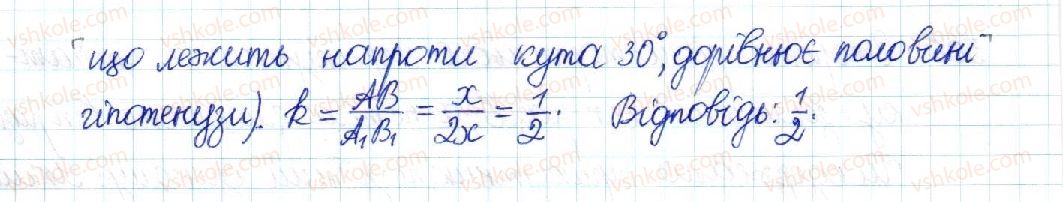 що лежить напроти кута 30°, дорівнює половині
гіпотенузи). k = AB/A₁B₁ = x/2x = 1/2. Відповідь: 1/2.